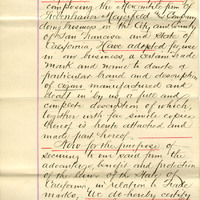 composing the Mercantile firm of
Mayerfeld & Company
doing business in the City and County
of San Francisco and State of
California, Have adopted for use
in our business, a certain Trade
Mark and name to denote a
particular brand and description
of cigars manufactured and
sold by us, a full and
complete description of which,
together with fac simile copies
thereof is hereto attached and
made part hereof.
Now for the purpose of
securing to our said firm the
advantage, benefit and protection
of the Laws of the State of
California, in relation to Trade
marks, We do hereby certify